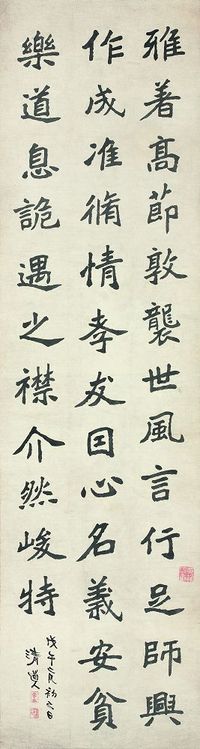 雅著高節敦襲世風言行足師興
作成准脩情孝友因心名義安貧
樂道息詭遇之襟介然峻特
戊午六月初二日
清道人